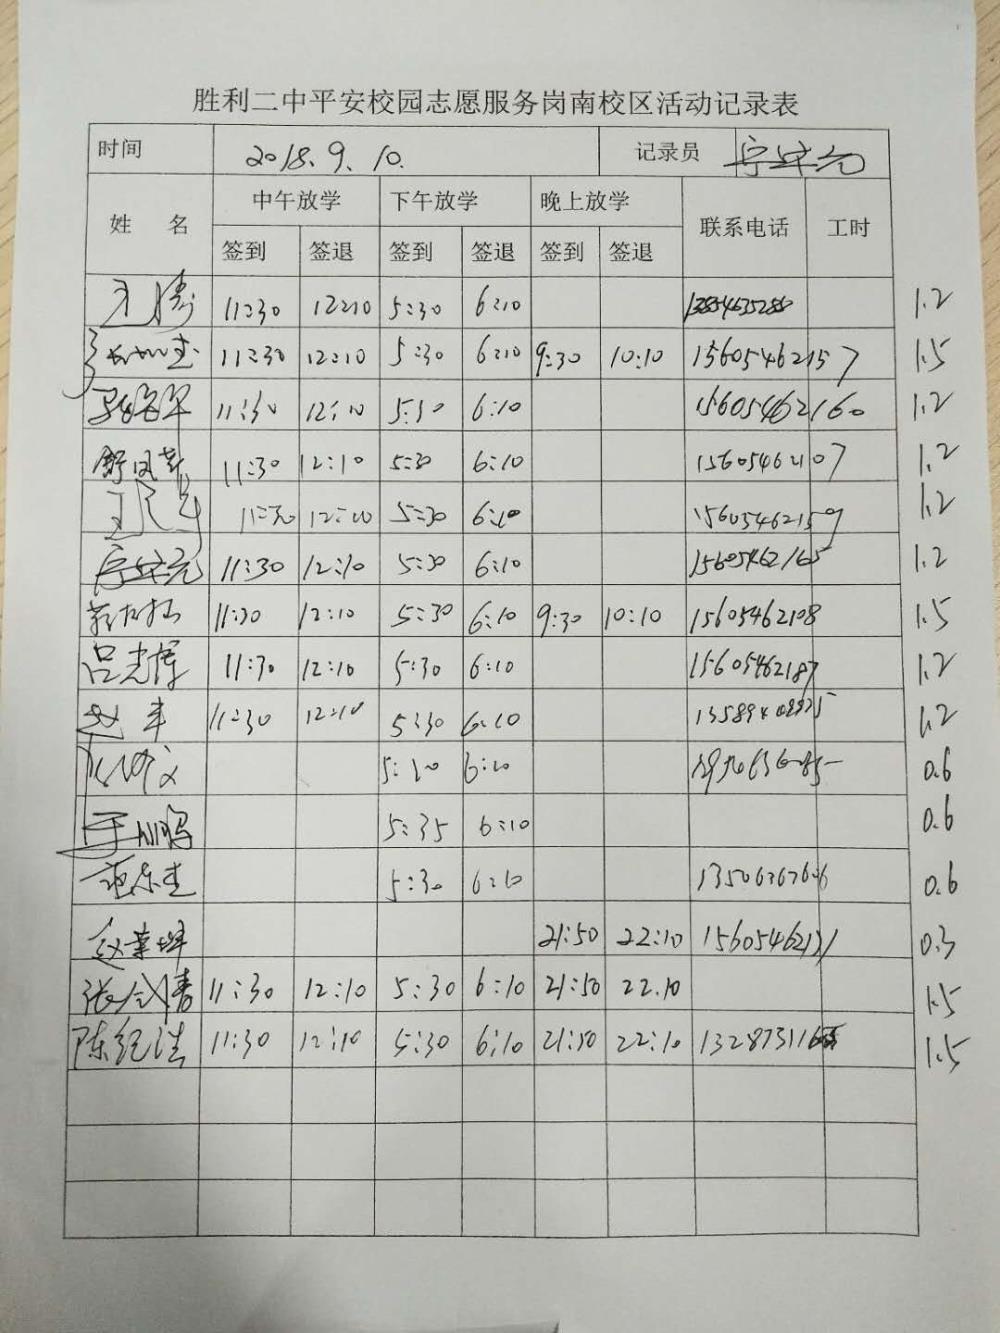 胜利二中平安校园志愿服务岗南校区活动记录表
时间 2018.9.10. 记录员
姓 名 中午放学 下午放学 晚上放学 联系电话 工时
签到 签退 签到 签退 签到 签退
王涛 11:30 12:10 5:30 6:10 1.2
11:30 12:10 5:30 6:10 9:30 10:10 15605462157 1.5
11:30 12:10 5:30 6:10 15605462160 1.2
11:30 12:10 5:30 6:10 15605462107 1.2
11:30 12:10 5:30 6:10 15605462159 1.2
11:30 12:10 5:30 6:10 15605462165 1.2
11:30 12:10 5:30 6:10 9:30 10:10 15605462108 1.5
吕志博 11:30 12:10 5:30 6:10 15605462187 1.2
赵丰 11:30 12:10 5:30 6:10 1.2
6:10 0.6
5:35 6:10 0.6
5:30 6:10 0.6
21:50 22:10 15605462121 0.3
11:30 12:10 5:30 6:10 21:50 22.10 1.5
陈纪浩 11:30 12:10 5:30 6:10 21:50 22:10 1.5